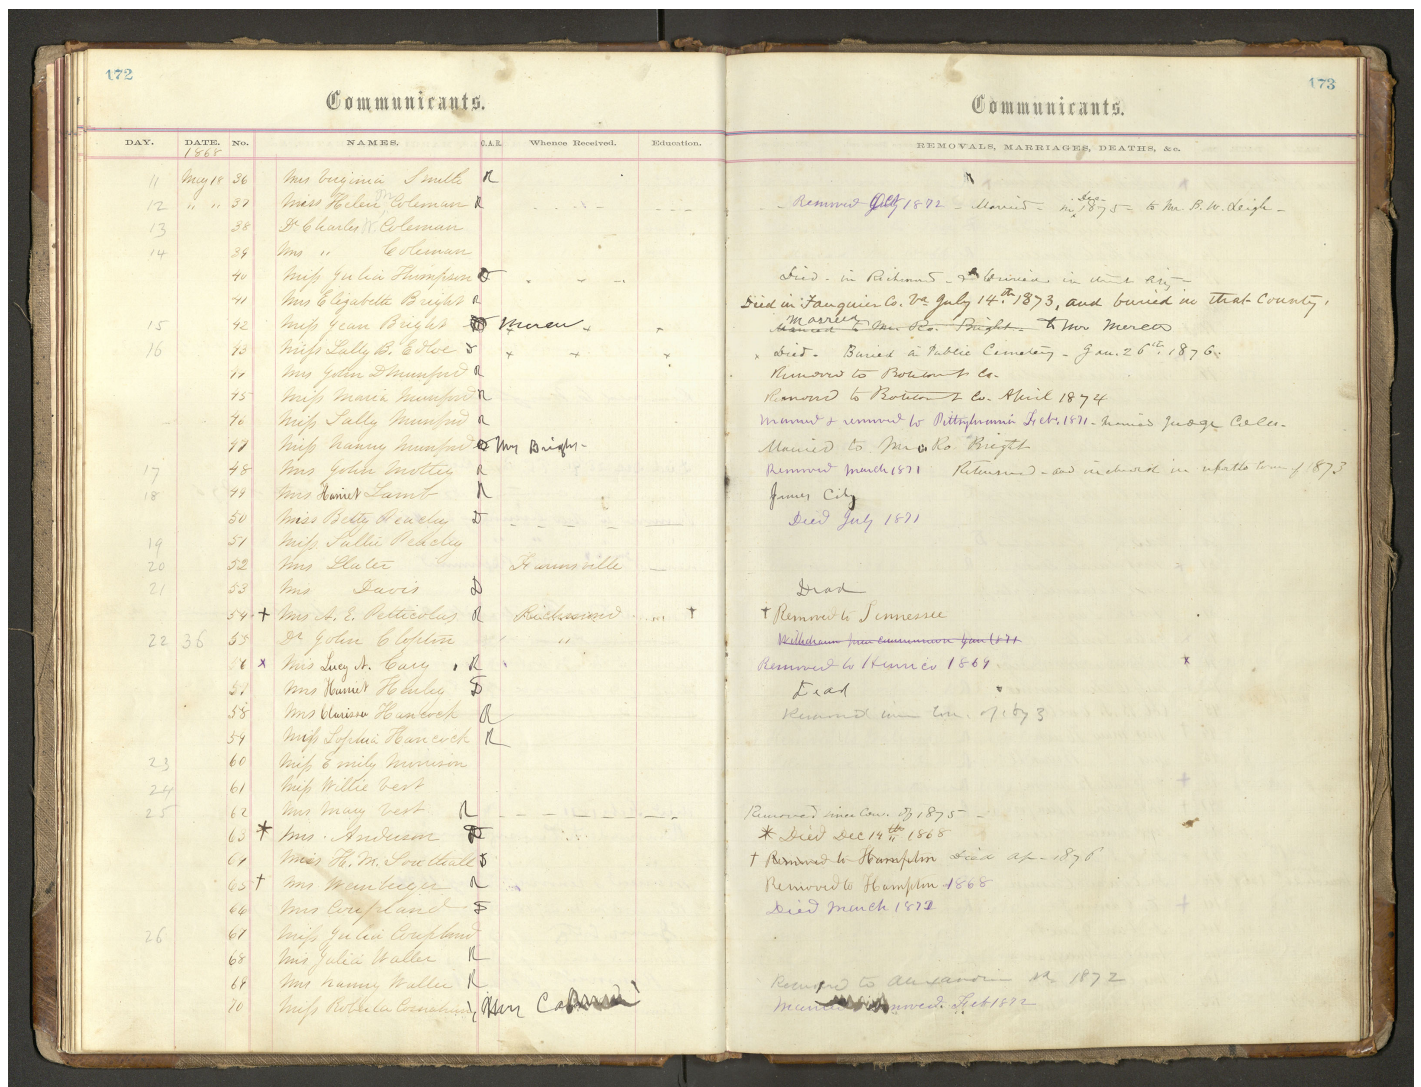 172
Communicants.
DAY. DATE. No. NAMES. C.A.R. Whence Received. Education.
1868
11 May 18 36 Mrs Virginia Smith R
12 " " 37 Miss Helen M Coleman R
13 38 Dr Charles W. Coleman
14 39 Mrs " Coleman
40 Miss Julia Thompson D
41 Mrs Elizabeth Bright R
15 42 Miss Jean Bright Mercer
16 43 Miss Sally B. D
44 Mrs John D Munford R
45 Miss Maria Munford R
46 Miss Sally Munford R
47 Miss Nanny Munford Mrs Bright
17 48 Mrs John R
18 49 Mrs Harriet Lamb R
50 Miss Betty Peachy D
19 51 Miss Sallie Peachy
20 52 Mrs Slater
21 53 Mrs Davis D
54 † Mrs A. E. Petticolas R Richmond †
22 36 55 Dr John Clopton "
56 x Mrs Lucy A. Cary R
57 Mrs Harriet Henley D
58 Mrs Clarissa Hancock R
59 Miss Sophia Hancock R
23 60 Miss Emily Morrison
24 61 Miss Willie Vest
25 62 Mrs Mary Vest R
63 Mrs. Anderson D
64 Miss H. M. Southall D
65 † Mrs R
66 Mrs Coupland D
26 67 Miss Julia Coupland
68 Mrs Julia Waller R
69 Mrs Nanny Waller R
70 Miss Roberta
173
Communicants.
REMOVALS, MARRIAGES, DEATHS, &c.
Removed 1872 - Married - in Dec 1875 - to Mr. B. W. Leigh -
Died - in Richmond
Died in Fauquier Co. Va July 14th. 1873, and buried in that County.
Married to Mr Mercer
Died - Buried in Public Cemetery - Jan. 26th. 1876.
Removed to Botetourt Co.
Removed to Botetourt Co. April 1874
Married & removed to Pittsylvania 1871 - married Judge Coles
Married to Mr Ro. Bright
Removed March 1871 Returned - and 1873
James City
Died July 1871
Dead
† Removed to Tennessee
Withdrawn from communion Jan 1871
Removed to Henrico 1869 x
Dead
Removed 1873
Removed since Con. of 1875 -
* Died Dec 14th 1868
† Removed to Hampton Died Ap - 1876
Removed to Hampton 1868
Died March 1872
Removed to Alexandria Va 1872
1872